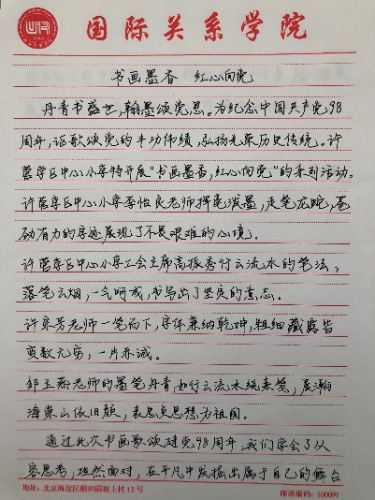 国际关系学院
书画墨香 红心向党
丹青书盛世，翰墨颂党恩。为纪念中国共产党98
周年，讴歌颂党的丰功伟绩，弘扬光荣历史传统。许
营学区中心小学特开展“书画墨香，红心向党”的系列活动。
许营学区中心小学李性良老师挥毫泼墨，走笔龙蛇，苍
劲有力的字迹展现了不畏艰难的心境。
许营学区中心小学工会主席高振秀行云流水的笔法，
落笔云烟，一气呵成，书写出了坚贞的意志。
许东芳老师一笔而下，字体兼纳乾坤，粗细藏露皆
变数无穷，一片赤诚。
邹玉燕老师的墨笔丹青，如行云流水绕素笺，展瀚
海崇山依旧颜，表忠贞思想为祖国。
通过此次书画歌颂建党98周年，我们学会了从
容思考，坦然面对，在平凡中发掘出属于自己的舞台
地址：北京海淀区颐和园坡上村12号 邮政编码：100091